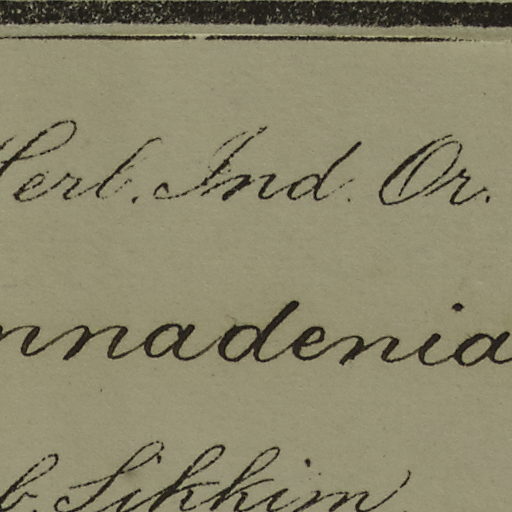 Herb. Ind. Or.
nnadenia
b. Sikkim